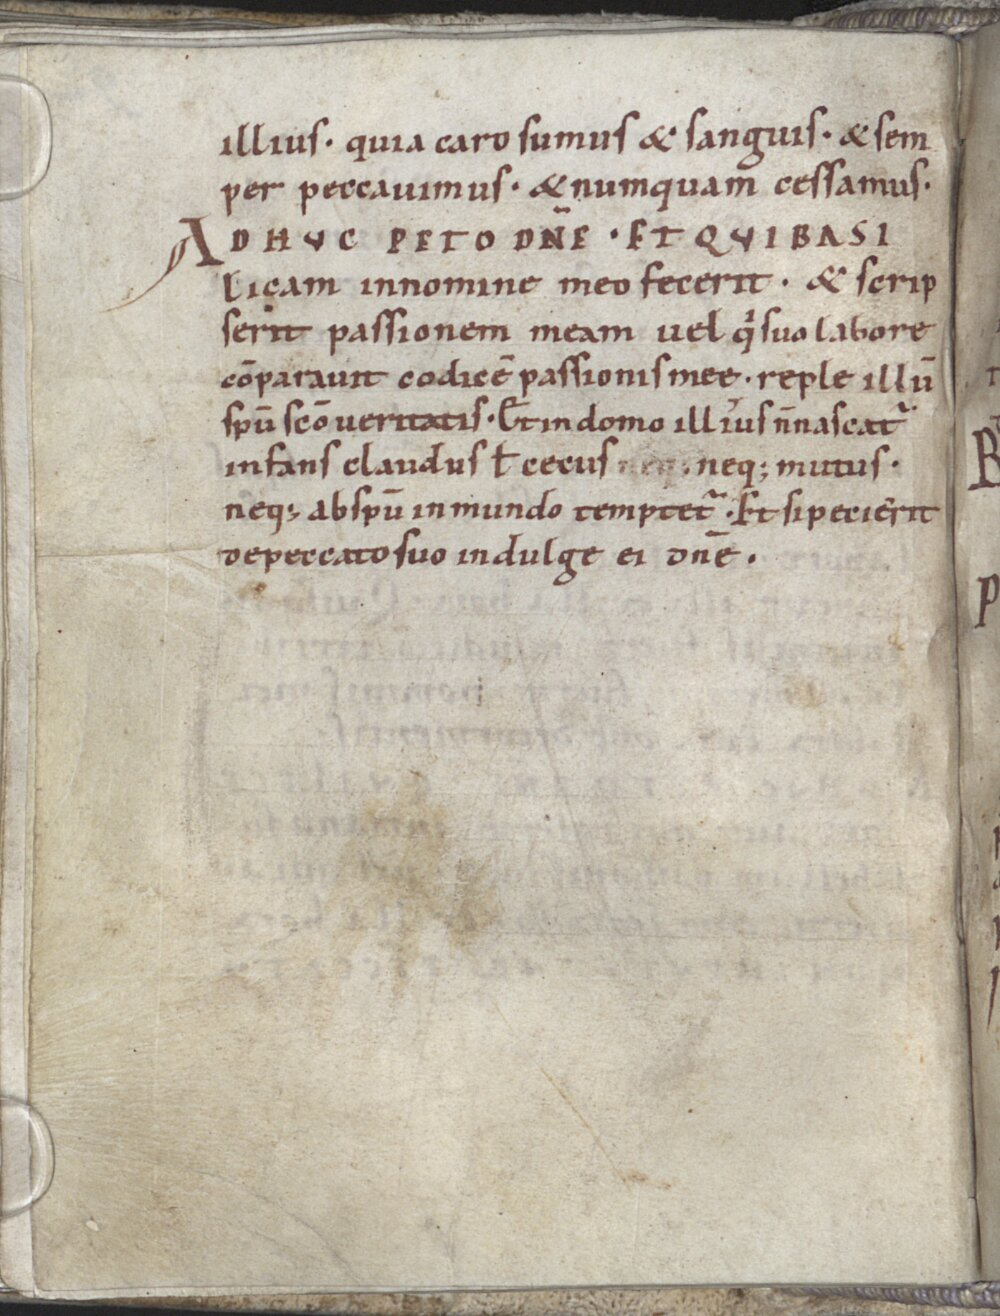 illius· quia caro sumus & sanguis· & sem
per peccauimus· & numquam cessamus·
ADHVC PETO DN̄E · ET QVI BASI
licam innomine meo fecerit · & scrip
serit passionem meam uel q̇ suo labore
cōparauit codicē passionis mee · reple illū
sp̄u sc̄o ueritatis · Et in domo illius n̄ nascat᷑
infans claudus ł cecus neq; mutus ·
neq; ab sp̄u inmundo temptet᷑ · Et si pecierit
de peccato suo indulge ei dn̄e ·